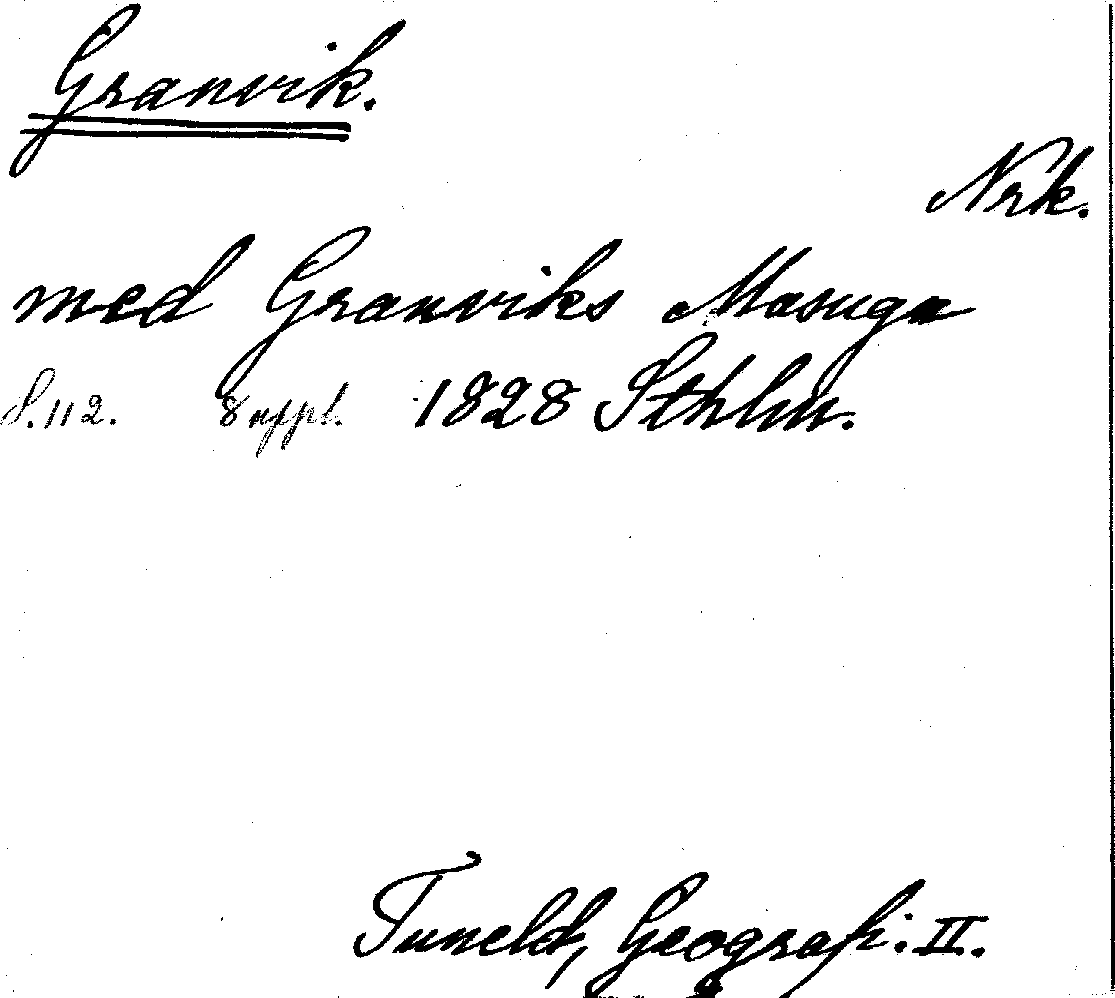 Granvik.
Nrk.
med Granviks Masugn
S. 112. 8 uppl. 1828 Sthlm.
Tuneld, Geografi. II.